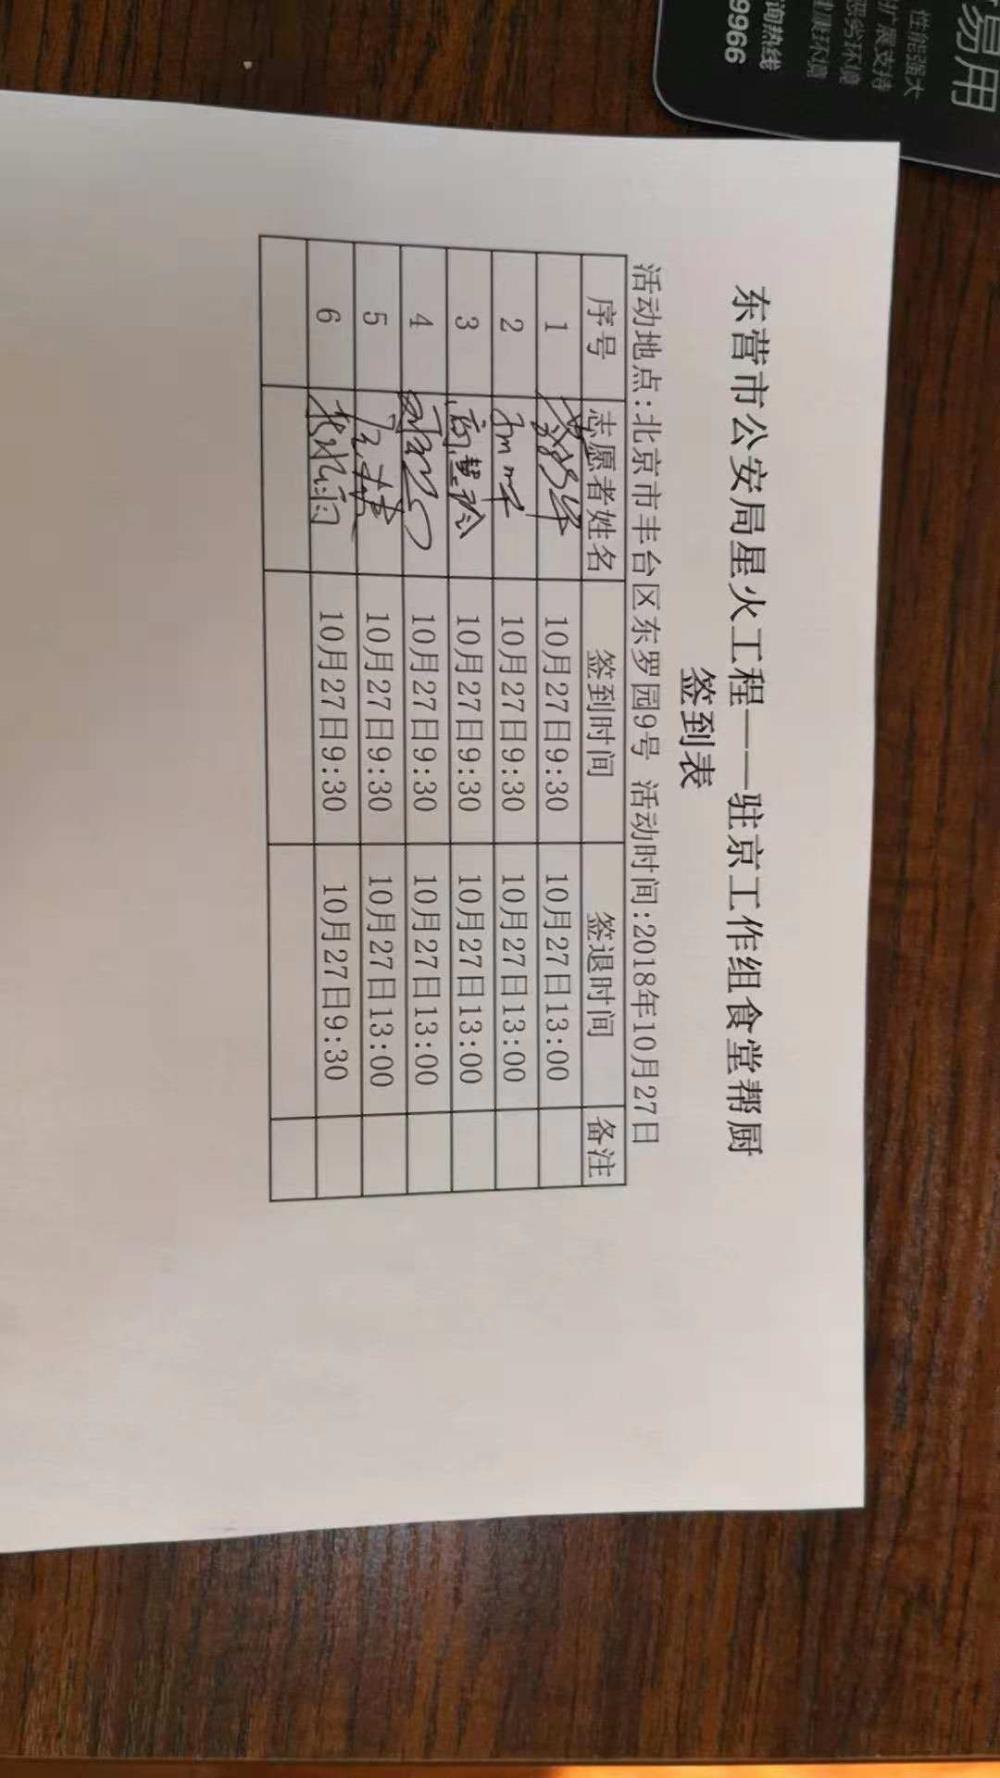 东营市公安局星火工程——驻京工作组食堂帮厨
签到表
活动地点:北京市丰台区东罗园9号 活动时间:2018年10月27日
序号 志愿者姓名 签到时间 签退时间 备注
1 10月27日9:30 10月27日13:00
2 10月27日9:30 10月27日13:00
3 高慧玲 10月27日9:30 10月27日13:00
4 10月27日9:30 10月27日13:00
5 10月27日9:30 10月27日13:00
6 张冰雨 10月27日9:30 10月27日9:30
易用
性能强大
扩展支持
恶劣环境
健康环境
询热线
9966